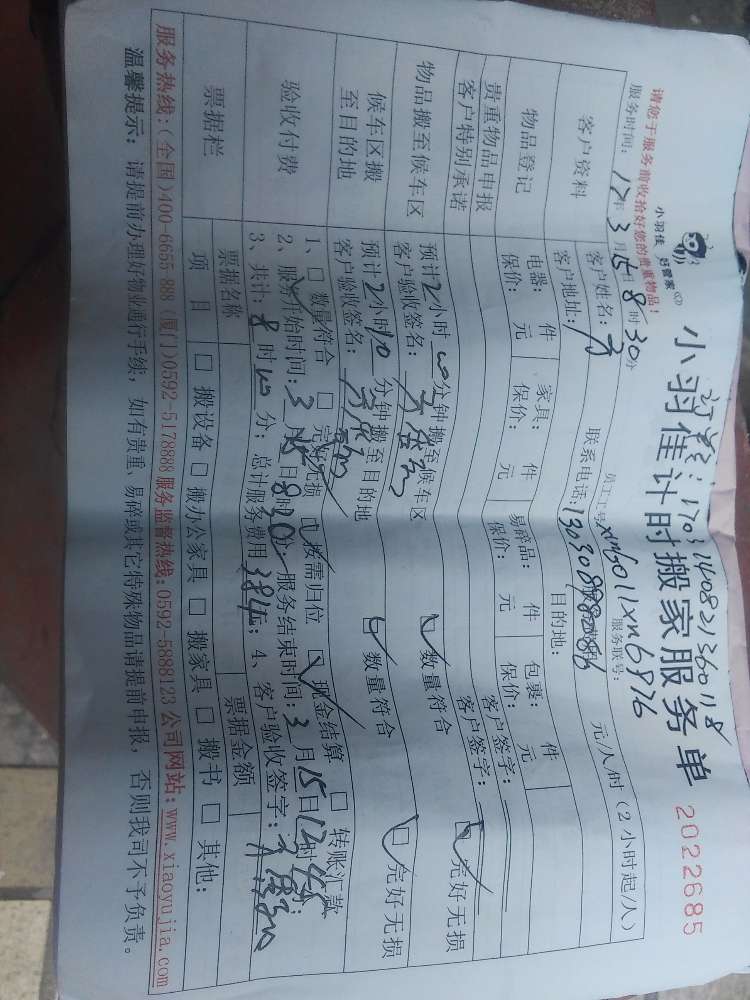 小羽佳 好管家
小羽佳计时搬家服务单
2022685
170314082136018
请您于服务前收拾好您的贵重物品!
员工工号: xm6011xm6976
服务联号:
服务时间: 17年 3月15日 8时30分
元/人/时 (2小时起/人)
客户资料
客户姓名:
联系电话:
客户地址:
目的地:
物品登记
电器: 件
家具: 件
易碎品: 件
包裹: 件
贵重物品申报
保价: 元
保价: 元
保价: 元
保价: 元
客户签字:
客户特别承诺
客户签字:
物品搬至候车区
预计2小时 分钟搬至候车区
客户验收签名:
☑ 数量符合
☑ 完好无损
候车区搬至目的地
预计2小时 分钟搬至目的地
客户验收签名:
☑ 数量符合
☐ 完好无损
验收付费
1、☐ 数量符合 ☐ 完好无损 ☑ 按需归位 ☑ 现金结算 ☐ 转账汇款
2、服务开始时间: 3月15日8时30分; 服务结束时间: 3月15日12时
3、共计: 8时 分; 总计服务费用384元; 4、客户验收签字:
票据栏
票据名称
票据金额
项目
☐ 搬设备 ☐ 搬办公家具 ☐ 搬家具 ☐ 搬书 ☐ 其他:
服务热线:(全国)400-6655 888 (厦门)0592-5178888 服务监督热线:0592-5888123 公司网站:www.xiaoyujia.com
温馨提示: 请提前办理好物业通行手续, 如有贵重、易碎或其它特殊物品请提前申报, 否则我司不予负责。